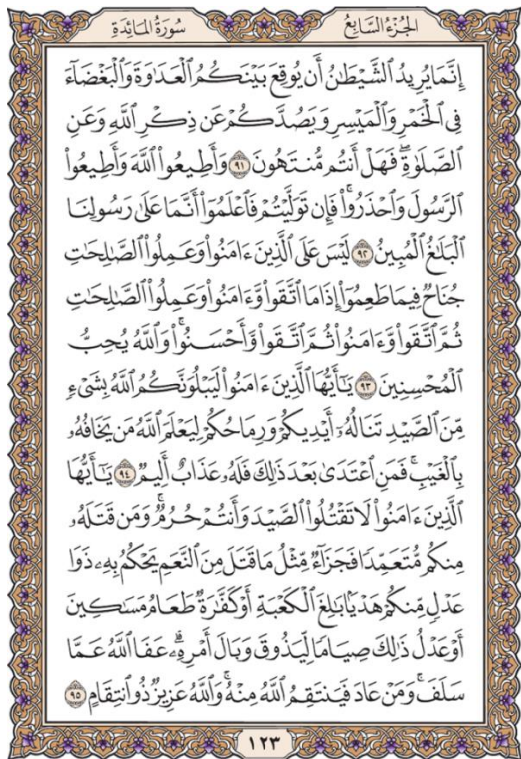 الجُزْءُ السَّابِعُ سُورَةُ المَائِدَةِ
إِنَّمَا يُرِيدُ ٱلشَّيْطَٰنُ أَن يُوقِعَ بَيْنَكُمُ ٱلْعَدَٰوَةَ وَٱلْبَغْضَآءَ
فِى ٱلْخَمْرِ وَٱلْمَيْسِرِ وَيَصُدَّكُمْ عَن ذِكْرِ ٱللَّهِ وَعَنِ
ٱلصَّلَوٰةِ ۖ فَهَلْ أَنتُم مُّنتَهُونَ ٩١ وَأَطِيعُوا۟ ٱللَّهَ وَأَطِيعُوا۟
ٱلرَّسُولَ وَٱحْذَرُوا۟ ۚ فَإِن تَوَلَّيْتُمْ فَٱعْلَمُوٓا۟ أَنَّمَا عَلَىٰ رَسُولِنَا
ٱلْبَلَٰغُ ٱلْمُبِينُ ٩٢ لَيْسَ عَلَى ٱلَّذِينَ ءَامَنُوا۟ وَعَمِلُوا۟ ٱلصَّٰلِحَٰتِ
جُنَاحٌ فِيمَا طَعِمُوٓا۟ إِذَا مَا ٱتَّقَوا۟ وَّءَامَنُوا۟ وَعَمِلُوا۟ ٱلصَّٰلِحَٰتِ
ثُمَّ ٱتَّقَوا۟ وَّءَامَنُوا۟ ثُمَّ ٱتَّقَوا۟ وَّأَحْسَنُوا۟ ۗ وَٱللَّهُ يُحِبُّ
ٱلْمُحْسِنِينَ ٩٣ يَٰٓأَيُّهَا ٱلَّذِينَ ءَامَنُوا۟ لَيَبْلُوَنَّكُمُ ٱللَّهُ بِشَىْءٍ
مِّنَ ٱلصَّيْدِ تَنَالُهُۥٓ أَيْدِيكُمْ وَرِمَاحُكُمْ لِيَعْلَمَ ٱللَّهُ مَن يَخَافُهُۥ
بِٱلْغَيْبِ ۚ فَمَنِ ٱعْتَدَىٰ بَعْدَ ذَٰلِكَ فَلَهُۥ عَذَابٌ أَلِيمٌ ٩٤ يَٰٓأَيُّهَا
ٱلَّذِينَ ءَامَنُوا۟ لَا تَقْتُلُوا۟ ٱلصَّيْدَ وَأَنتُمْ حُرُمٌ ۚ وَمَن قَتَلَهُۥ
مِنكُم مُّتَعَمِّدًا فَجَزَآءٌ مِّثْلُ مَا قَتَلَ مِنَ ٱلنَّعَمِ يَحْكُمُ بِهِۦ ذَوَا
عَدْلٍ مِّنكُمْ هَدْيًۢا بَٰلِغَ ٱلْكَعْبَةِ أَوْ كَفَّٰرَةٌ طَعَامُ مَسَٰكِينَ
أَوْ عَدْلُ ذَٰلِكَ صِيَامًا لِّيَذُوقَ وَبَالَ أَمْرِهِۦ ۗ عَفَا ٱللَّهُ عَمَّا
سَلَفَ ۚ وَمَنْ عَادَ فَيَنتَقِمُ ٱللَّهُ مِنْهُ ۗ وَٱللَّهُ عَزِيزٌ ذُو ٱنتِقَامٍ ٩٥
١٢٣